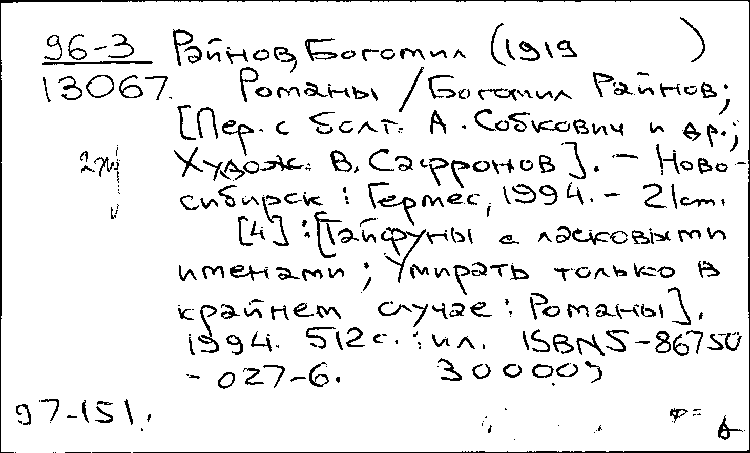 96-3 Райнов, Богомил (1919 )
13067. Романы / Богомил Райнов;
[Пер. с болг. А. Собкович и др.;
2 эк
Худож. В. Сафронов]. - Ново-
сибирск : Гермес, 1994. - 21 см.
[4] : [Тайфуны с ласковыми
именами ; Умирать только в
крайнем случае : Романы].
1994. 512 с. : ил. ISBN 5-86750
-027-6. 30000э
97-151.